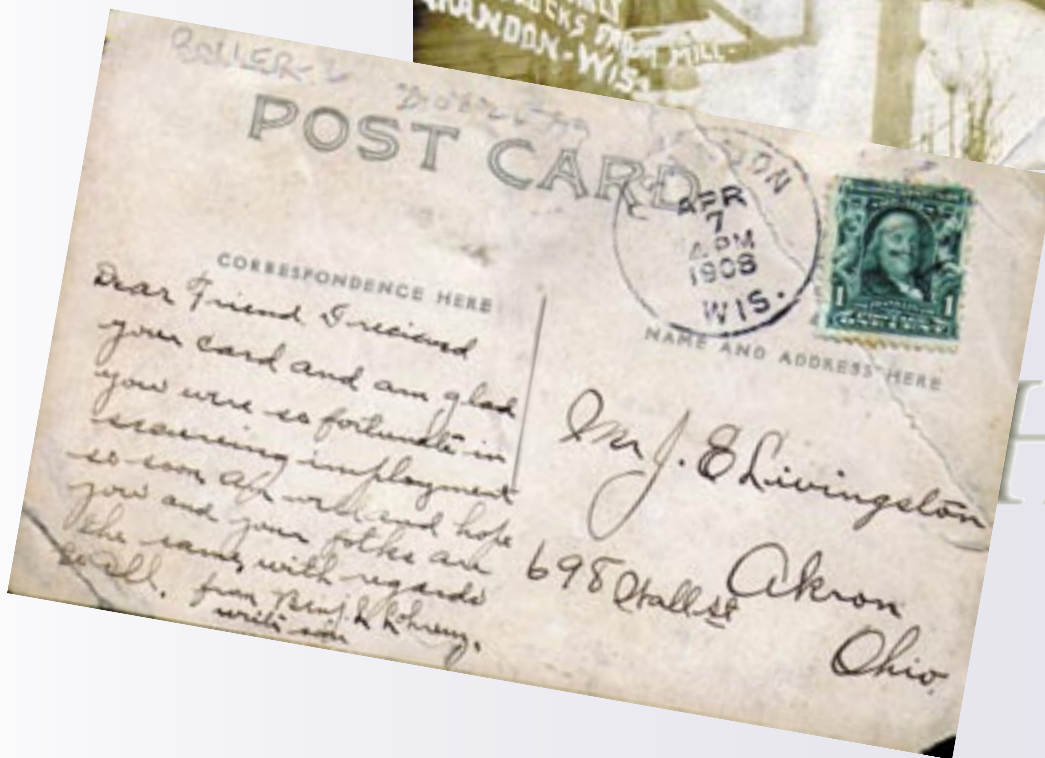 LOCKS FROM MILL-
RANDON-WIS.
BOLLER
POST CARD
DON
APR
7
PM
1908
WIS.
1 1
CORRESPONDENCE HERE
NAME AND ADDRESS HERE
Dear Friend I recieved
your card and am glad
you were so fortunate in
securing imployment
so soon am well and hope
you and your folks are
the same, with regards
to all. from
write soon
Mr J. E Livingston
698 Hall st Akron
Ohio.
H